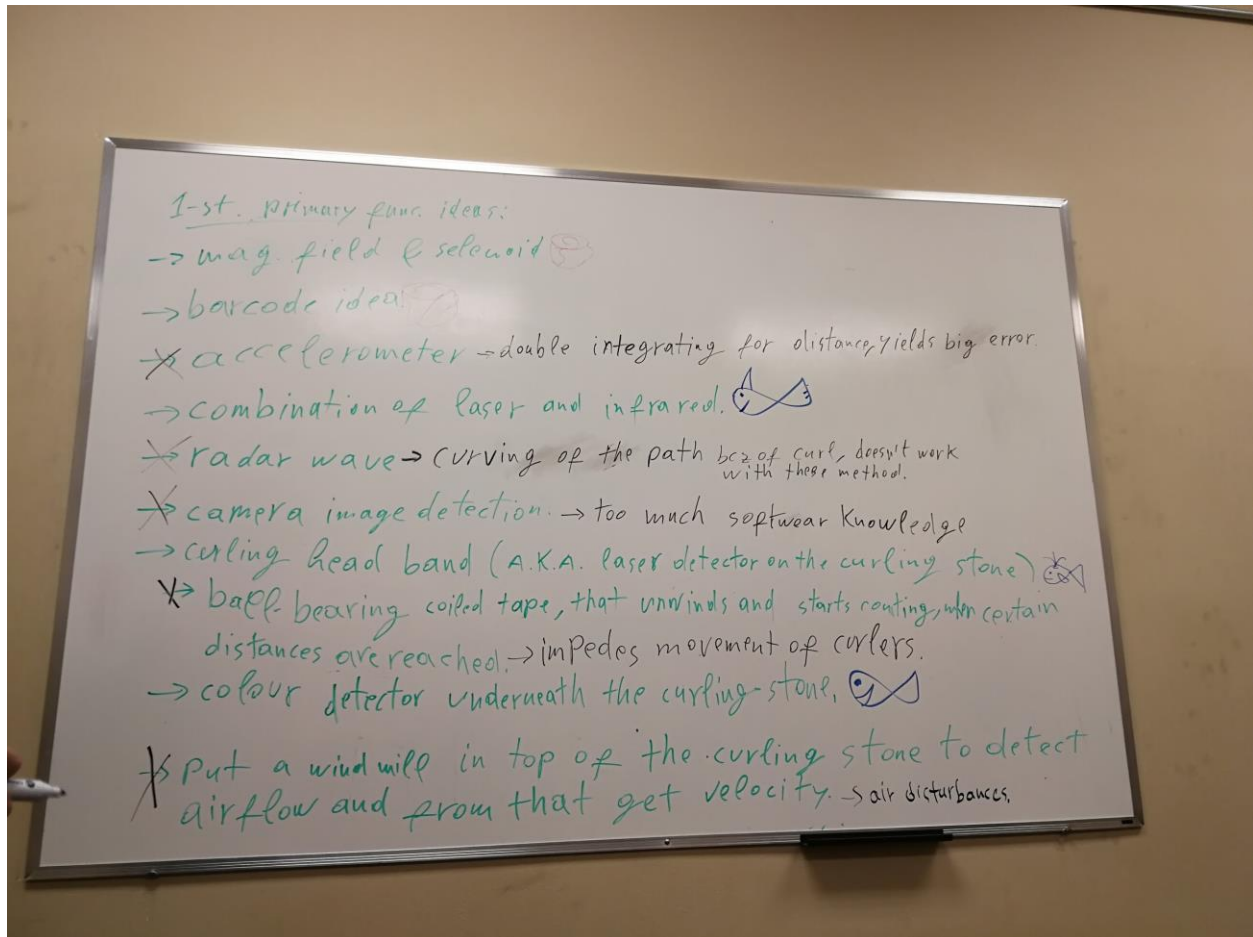 1-st. primary func. ideas:
-> mag. field & selenoid
-> barcode idea
-> accelerometer -> double integrating for distance, yields big error.
-> combination of laser and infrared.
-> radar wave -> curving of the path bcz of curl, doesn't work
with these method.
-> camera image detection. -> too much softwear Knowledge
-> curling head band (A.K.A. laser detector on the curling stone)
-> ball-bearing coiled tape, that unwinds and starts couting, when certain
distances are reached. -> impedes movement of curlers.
-> colour detector underneath the curling-stone.
-> put a wind mill in top of the curling stone to detect
airflow and from that get velocity. -> air disturbances.